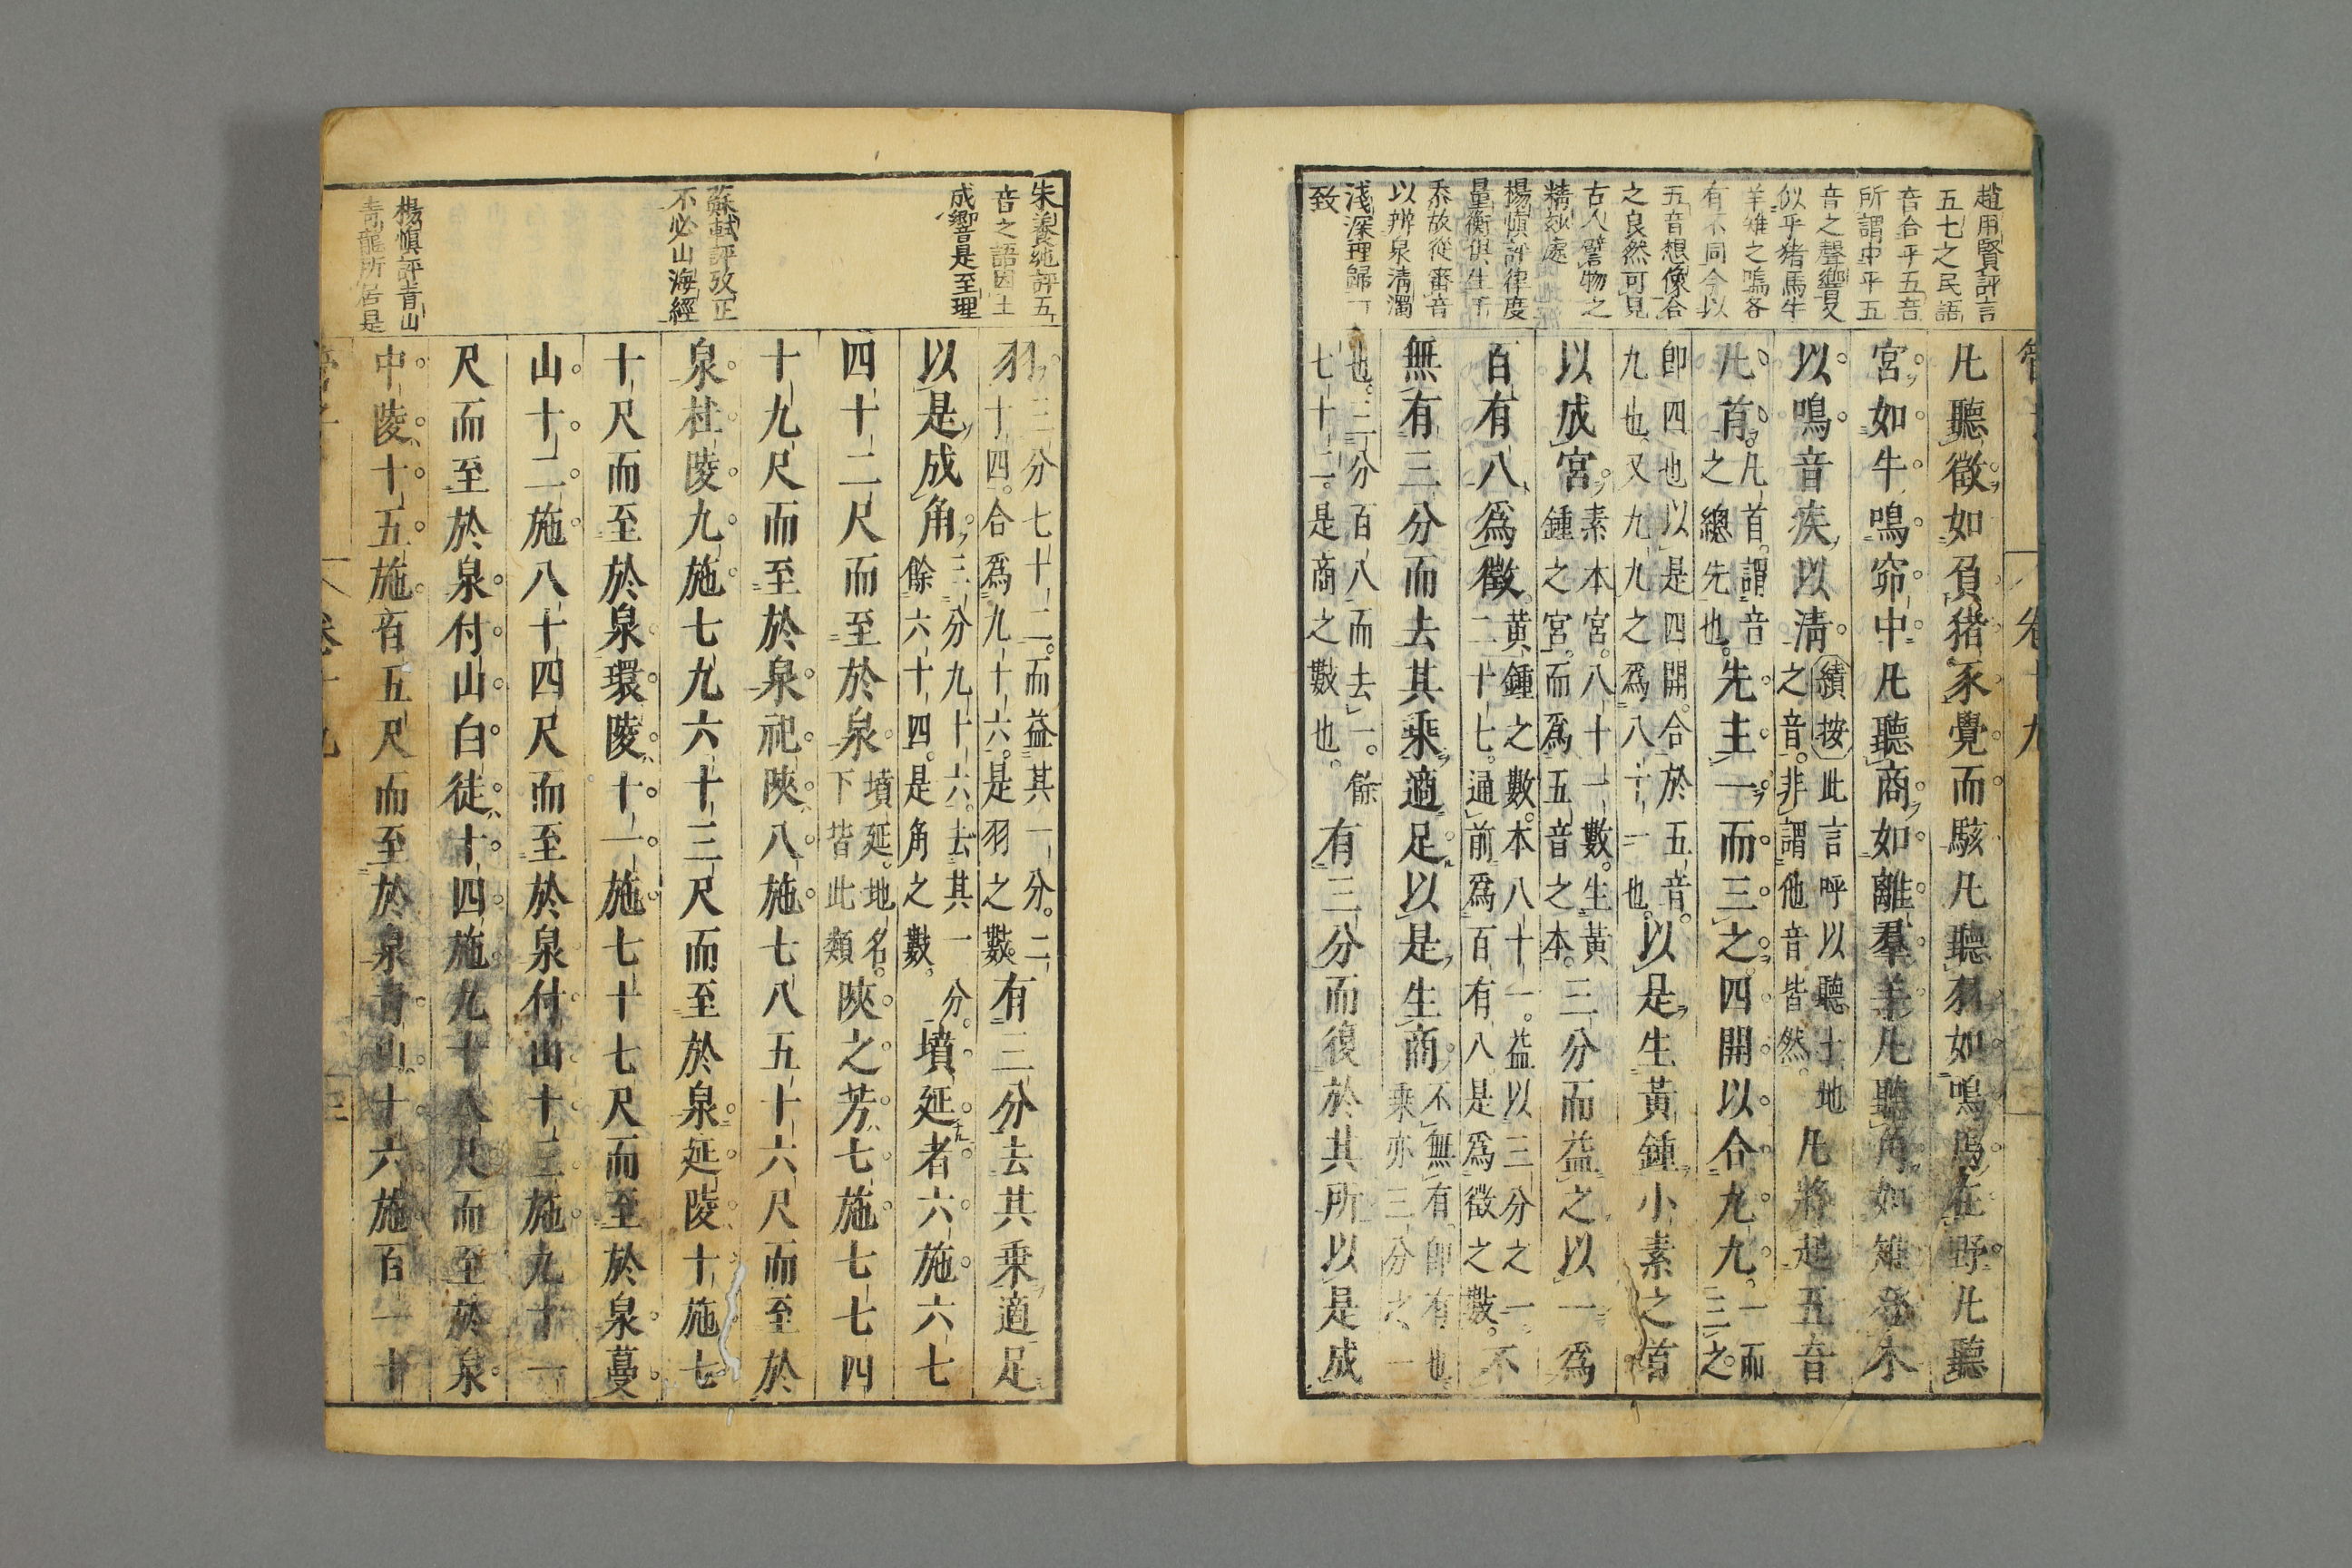 趙用賢評言
五七之民語
音合乎五音
所謂中乎五
音之聲響又
似乎猪馬牛
羊雉之鳴各
有不同今以
五音想像合
之良然可見
古人譬物之
精玅處
楊慎評律度
量衡俱生于
黍故從審音
以辨泉淸濁
淺深理歸一
致
卷十九
凡聽徵如負猪豕覺而駭凡聽羽如鳴馬在野凡聽
宮如牛鳴窌中凡聽商如離羣羊凡聽角如雉登木
以鳴音疾以淸
績按此言呼以聽土地
之音非謂他音皆然
凡將起五音
凡首
凡首謂音
之總先也
先主一而三之四開以合九九
一而
三之
卽四也以是四開合於五音
九也又九九之爲八十一也
以是生黃鍾小素之首
以成宮
素本宮八十一數生黃
鍾之宮而爲五音之本
三分而益之以一爲
百有八爲徵
黃鍾之數本八十一益以三分之一
二十七通前爲百有八是爲徵之數
不
無有三分而去其乘適足以是生商
不無有卽有也
乘亦三分之一
也三分百八而去一餘
七十二是商之數也
有三分而復於其所以是成
朱養純評五
音之語因土
成響是至理
蘇軾評攷正
不必山海經
楊慎評靑山
靑龍所居是
羽
三分七十二而益其一分二
十四合爲九十六是羽之數
有三分去其乘適足
以是成角
三分九十六去其一分
餘六十四是角之數
墳延者六施六七
四十二尺而至於泉
墳延地名
下皆此類
陝之芳七施七七四
十九尺而至於泉祀陝八施七八五十六尺而至於
泉杜陵九施七九六十三尺而至於泉延陵十施七
十尺而至於泉環陵十一施七十七尺而至於泉蔓
山十二施八十四尺而至於泉付山十三施九十一
尺而至於泉付山白徒十四施九十八尺而至於泉
中陵十五施百五尺而至於泉靑山十六施百一十